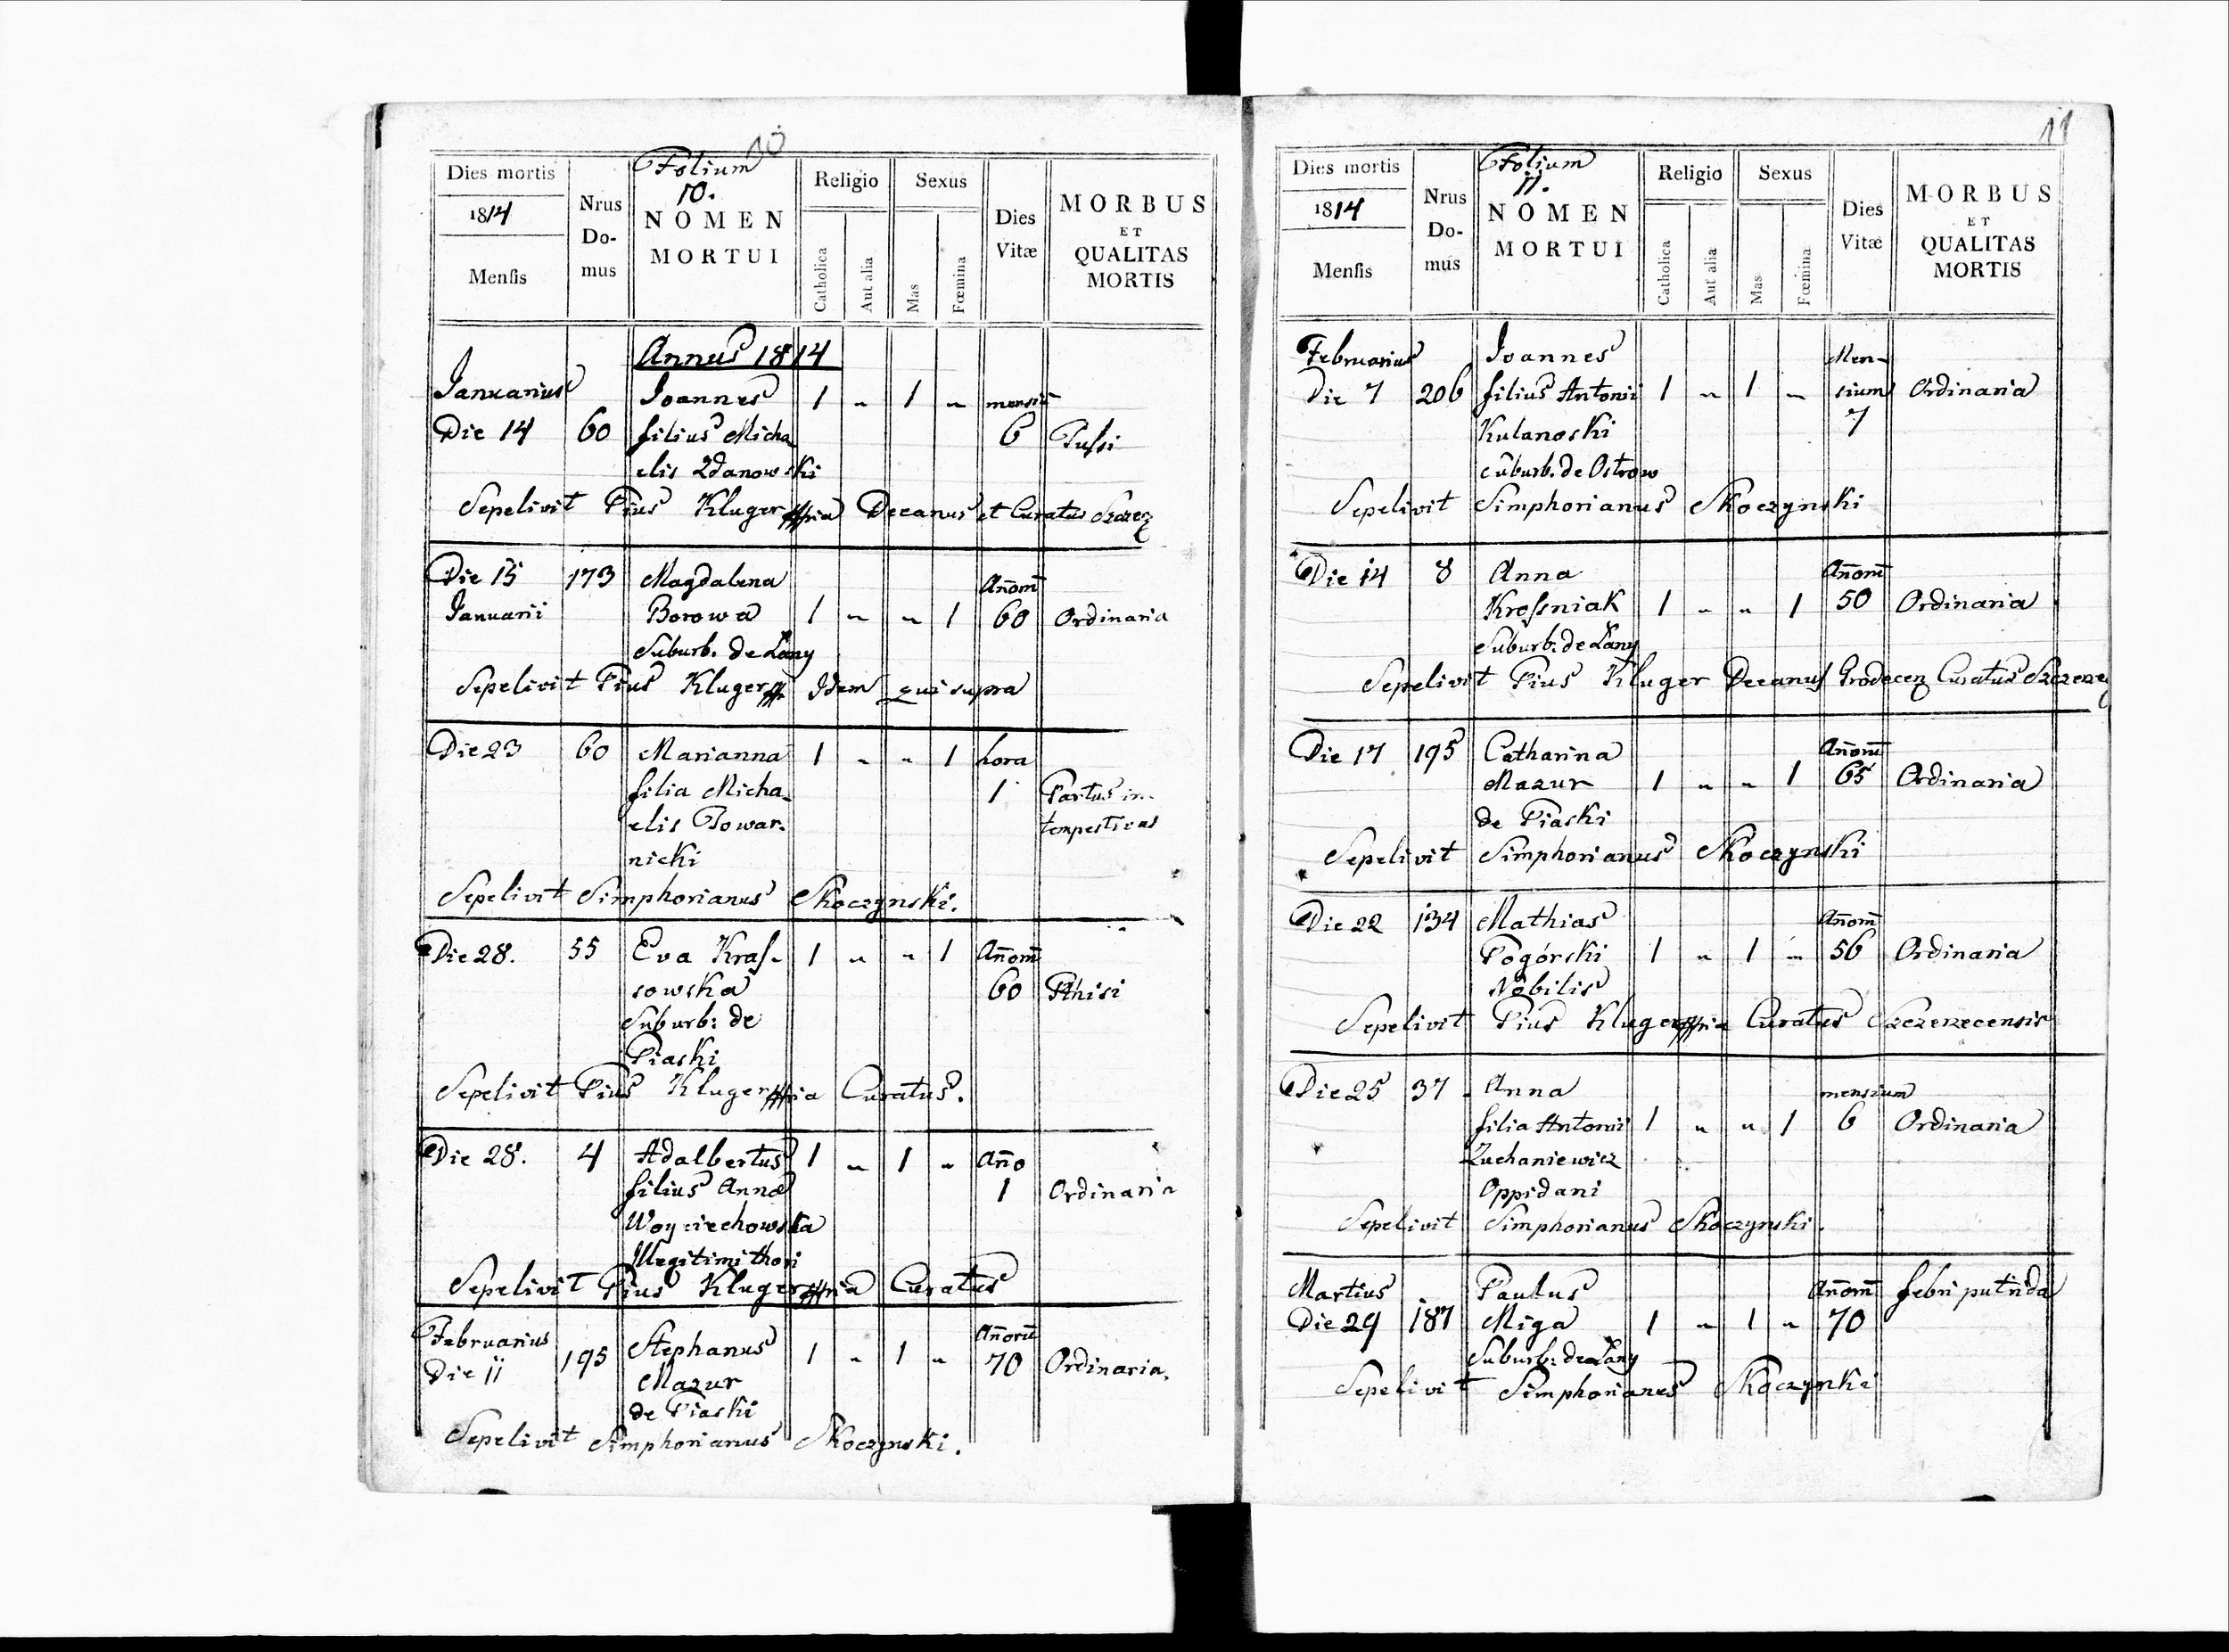 10
Folium
10.
Dies mortis
1814
Mensis
Nrus
Do-
mus
NOMEN
MORTUI
Religio
Catholica
Aut alia
Sexus
Mas
Fœmina
Dies
Vitæ
MORBUS
ET
QUALITAS
MORTIS
Annus 1814
Januarius Joannes 1 " 1 " mensiū
Die 14 60 filius Micha 6 Tussi
elis Zdanowski
Sepelivit Pius Kluger Decanus et Curatus Szczez
Die 15 173 Magdalena Añom̄
Januarii Borowa 1 " " 1 60 Ordinaria
Suburb. de Lany
Sepelivit Pius Kluger Idem qui supra
Die 23 60 Marianna 1 " " 1 hora
filia Micha- 1 Partus in-
elis Towar- tempestivus
nicki
Sepelivit Simphorianus Skoczynski.
Die 28. 55 Eva Kras- 1 " " 1 Añom̄
sowska 60 Pthisi
Suburb: de
Piaski
Sepelivit Pius Kluger Curatus.
Die 28. 4 Adalbertus 1 " 1 " Año
filius Annæ 1 Ordinaria
Woyciechowska
Illegitimi thori
Sepelivit Pius Kluger Curatus
Februarius Stephanus Añorū
Die 11 195 Mazur 1 " 1 " 70 Ordinaria.
de Piaski
Sepelivit Simphorianus Skoczynski.
11
Folium
11.
Dies mortis
1814
Mensis
Nrus
Do-
mus
NOMEN
MORTUI
Religio
Catholica
Aut alia
Sexus
Mas
Fœmina
Dies
Vitæ
MORBUS
ET
QUALITAS
MORTIS
Februarius Joannes Men-
Die 7 206 filius Antonii 1 " 1 " sium Ordinaria
Kulanoski 7
suburb. de Ostrow
Sepelivit Simphorianus Skoczynski
Die 14 8 Anna Añom̄
Krosniak 1 " " 1 50 Ordinaria
Suburb: de Lany
Sepelivit Pius Kluger Decanus Grodecen Curatus
Die 17 195 Catharina Añom̄
Mazur 1 " " 1 65 Ordinaria
de Piaski
Sepelivit Simphorianus Skoczynski
Die 22 134 Mathias Añom̄
Pogórski 1 " 1 " 56 Ordinaria
Nobilis
Sepelivit Pius Kluger Curatus Szczerzecensis
Die 25 37 Anna mensium
filia Antonii 1 " " 1 6 Ordinaria
Zuchaniewicz
Oppidani
Sepelivit Simphorianus Skoczynski.
Martius Paulus Añom̄ febri putrida
Die 29 187 Miga 1 " 1 " 70
Suburb: de Lany
Sepelivit Simphorianus Skoczynski